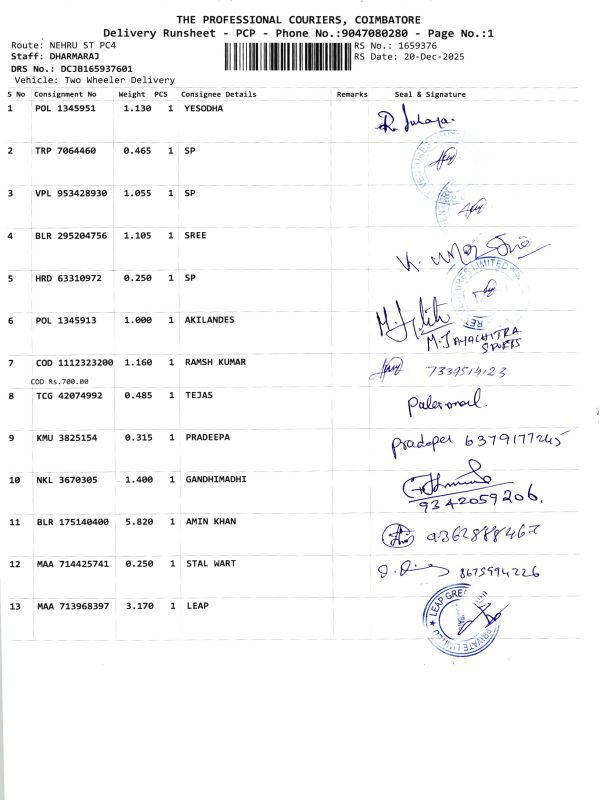 THE PROFESSIONAL COURIERS, COIMBATORE
Delivery Runsheet - PCP - Phone No.:9047080280 - Page No.:1
Route: NEHRU ST PC4 RS No.: 1659376
Staff: DHARMARAJ RS Date: 20-Dec-2025
DRS No.: DCJB165937601
Vehicle: Two Wheeler Delivery
S No Consignment No Weight PCS Consignee Details Remarks Seal & Signature
1 POL 1345951 1.130 1 YESODHA
2 TRP 7064460 0.465 1 SP
3 VPL 953428930 1.055 1 SP
4 BLR 295204756 1.105 1 SREE
5 HRD 63310972 0.250 1 SP
6 POL 1345913 1.000 1 AKILANDES
M. JAYACHITRA
SPORTS
7 COD 1112323200 1.160 1 RAMSH KUMAR 7339514123
COD Rs.700.00
8 TCG 42074992 0.485 1 TEJAS
9 KMU 3825154 0.315 1 PRADEEPA 6379177245
10 NKL 3670305 1.400 1 GANDHIMADHI
9342059206.
11 BLR 175140400 5.820 1 AMIN KHAN
12 MAA 714425741 0.250 1 STAL WART 8675994226
13 MAA 713968397 3.170 1 LEAP
LEAP GREEN
PRIVATE LIMITED